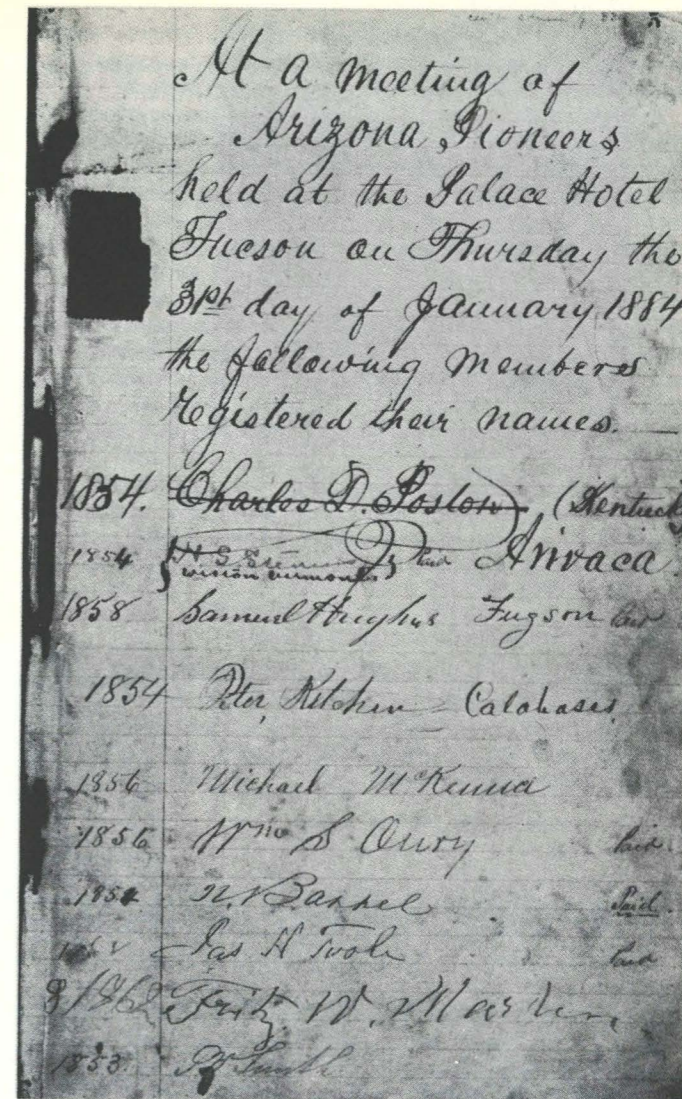 At a meeting of
Arizona Pioneers
held at the Palace Hotel
Tucson on Thursday the
31st day of January 1884
the following members
registered their names.
1854. Charles D. Poston (Kentuck
1854 H S Paid Arivaca
1858 Samuel Hughes Tugson Paid
1854 Peter Kitchen Calabases
1856 Michael McKenna
1856 Wm S Oury Paid
1854 Paid
Jas H Toole Paid
1862 Fritz W.
1853 Smith